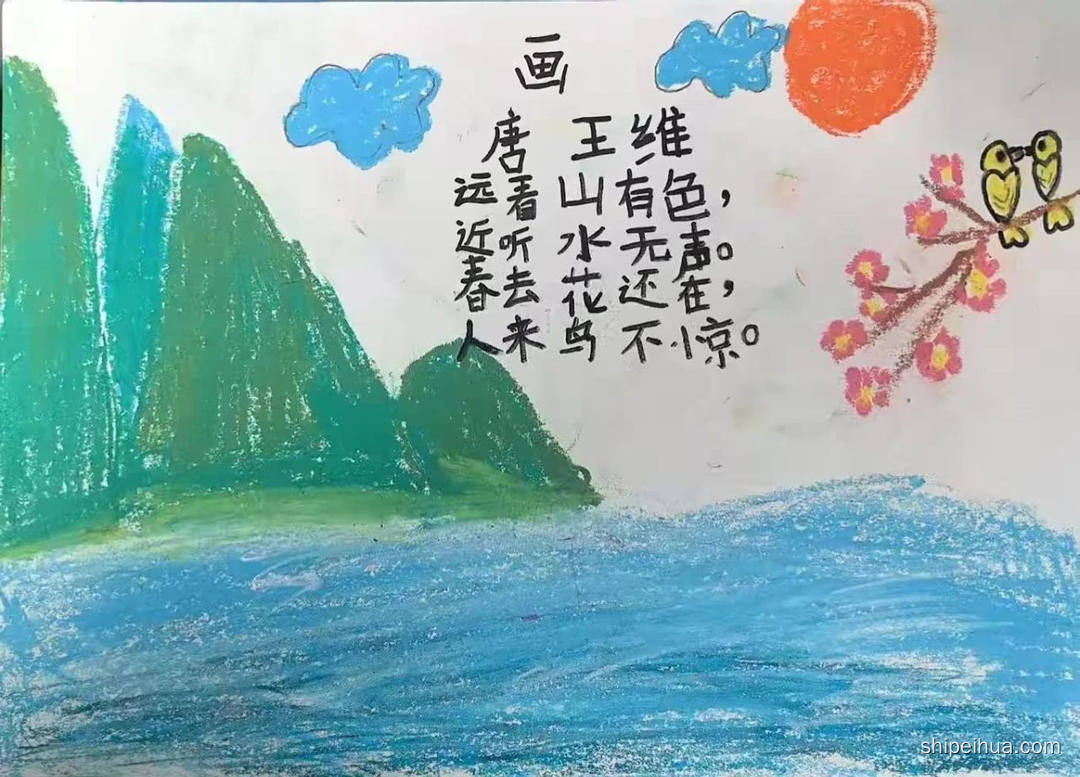 画
唐 王维
远看山有色，
近听水无声。
春去花还在，
人来鸟不惊。
shipeihua.com